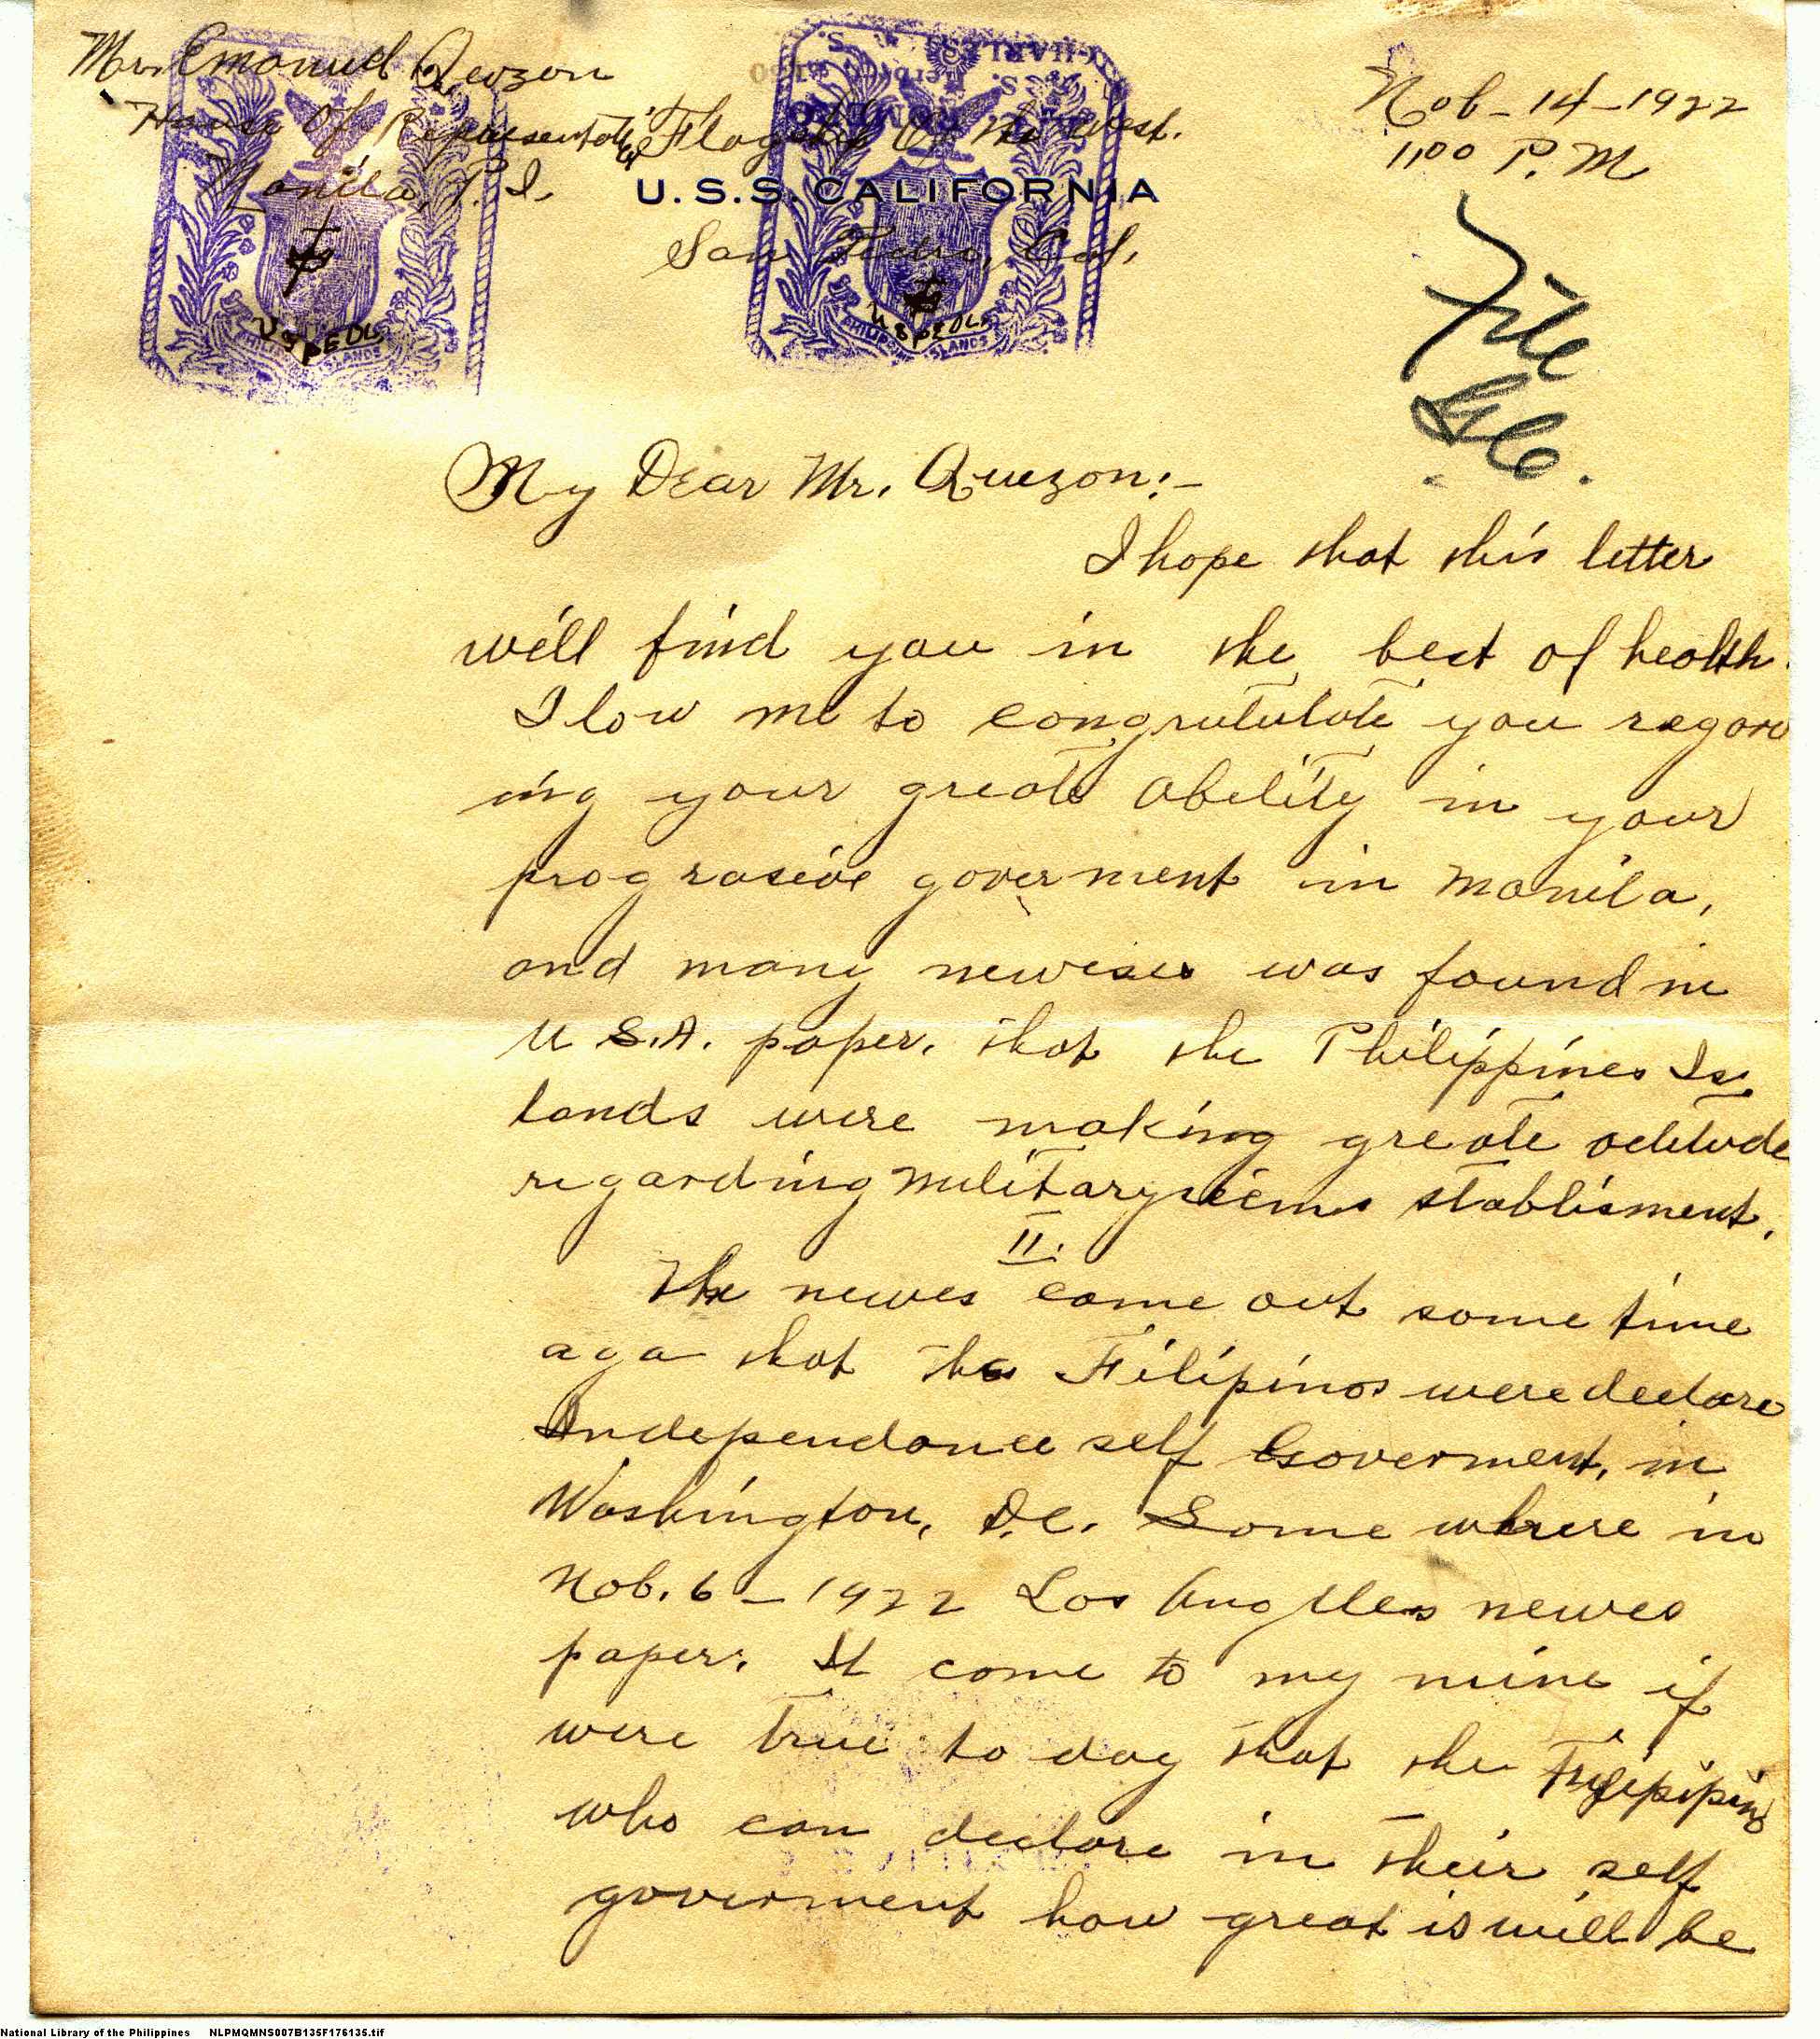 Mr. Emanuel Quezon
House Of Representative
Manila, P. I.
Flagship Of The West.
U.S.S. CALIFORNIA
San Pedro, Cal.
Nob-14-1922
1100 P.M
File
PHILIPPINE ISLANDS
PHILIPPINE ISLANDS
My Dear Mr. Quezon:-
I hope that this letter
will find you in the best of health.
I low me to congratulate you regard
ing your greate ability in your
prograsive goverment in Manila,
and many neweses was found in
U S.A. paper. that the Philippines Is
lands were making greate actitude
regarding military stablisment.
II.
The newes come out some time
aga that the Filipinos were declare
Independance self Goverment, in
Washington, D.C. Some where in
Nob. 6-1922 Los Angeles newes
paper. It come to my mine if
were true to day that the
who can declare in their self
goverment how great is will be
National Library of the Philippines NLPMQMNS007B135F176135.tif